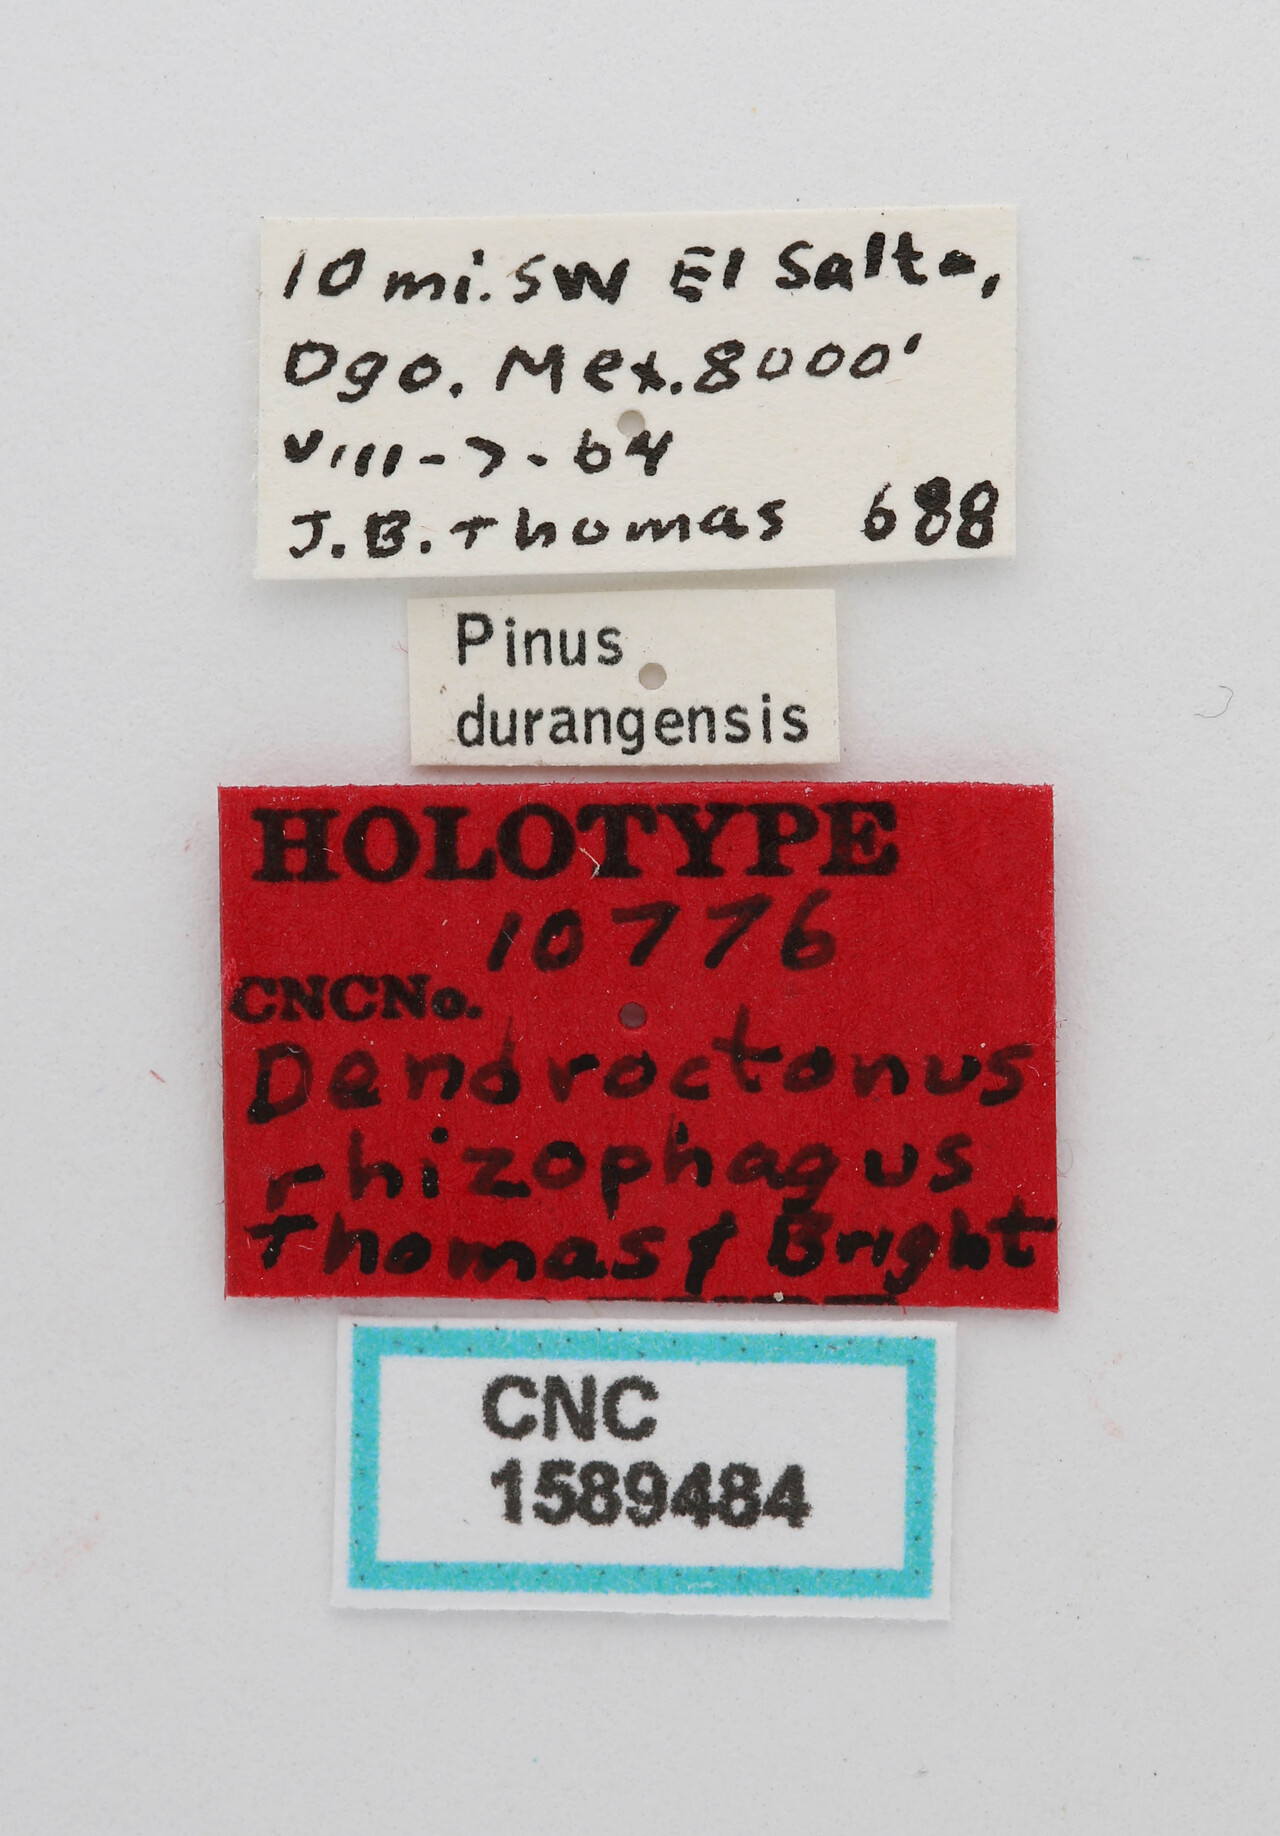 10 mi. SW El Salto,
Dgo. Mex. 8000'
VIII-7-64
J.B. Thomas 688
Pinus
durangensis
HOLOTYPE
10776
CNCNo.
Dendroctonus
rhizophagus
Thomas & Bright
CNC
1589484